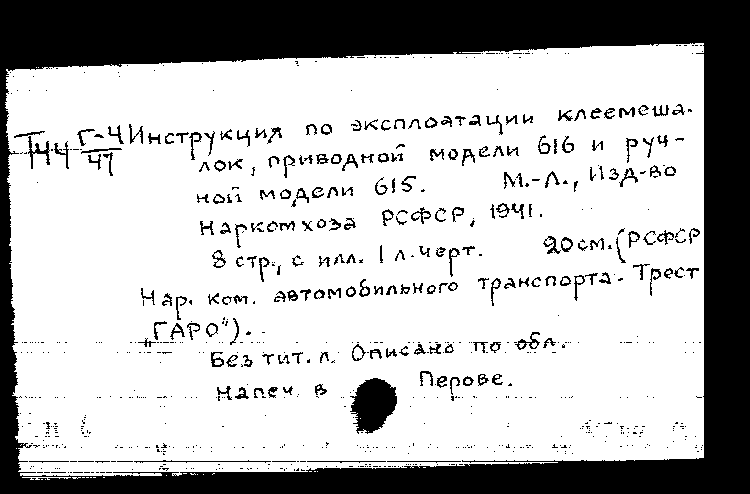 Т44 Г-4 Инструкция по эксплоатации клеемеша-
47 лок, приводной модели 616 и руч-
ной модели 615. М.-Л., Изд-во
Наркомхоза РСФСР, 1941.
8 стр., с илл. 1 л. черт. 20 см. (РСФСР
Нар. ком. автомобильного транспорта. Трест
„ГАРО").
Без тит. л. Описано по обл.
Напеч. в Перове.